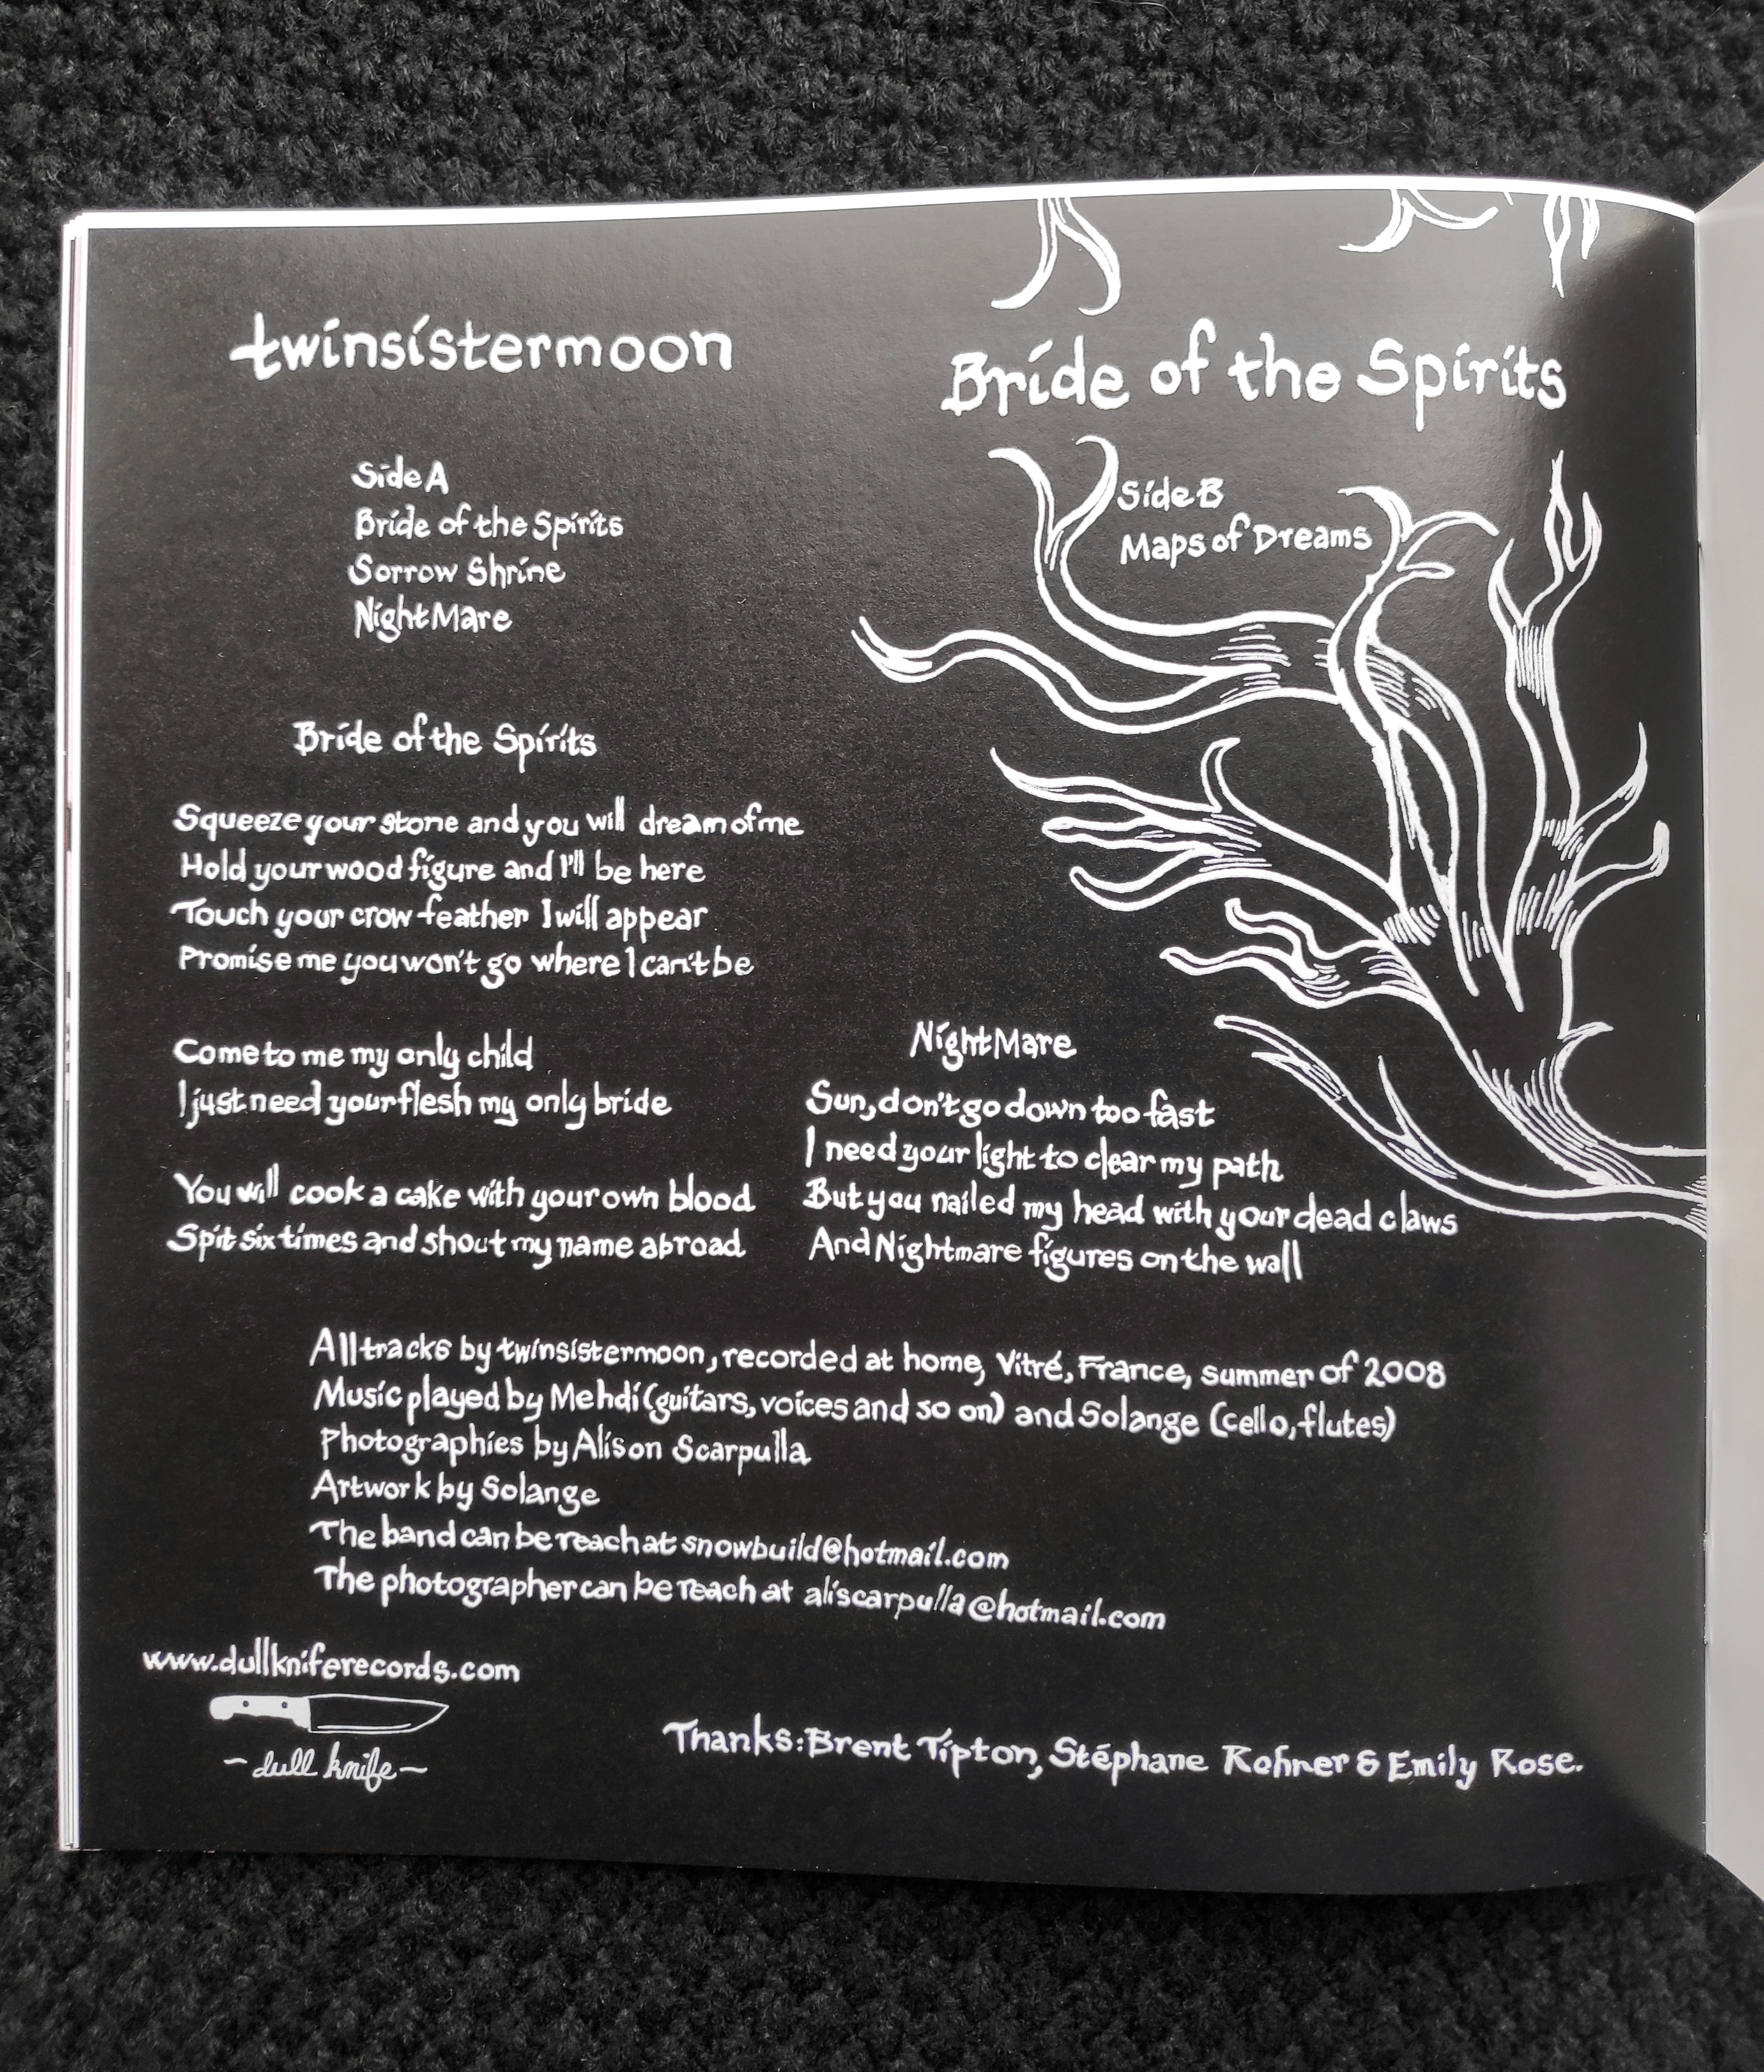 twinsistermoon
Bride of the Spirits
Side A
Bride of the Spirits
Sorrow Shrine
NightMare
Side B
Maps of Dreams
Bride of the Spirits
Squeeze your stone and you will dream of me
Hold your wood figure and I'll be here
Touch your crow feather I will appear
Promise me you won't go where I can't be
Come to me my only child
I just need your flesh my only bride
You will cook a cake with your own blood
Spit six times and shout my name abroad
NightMare
Sun, don't go down too fast
I need your light to clear my path
But you nailed my head with your dead claws
And Nightmare figures on the wall
All tracks by twinsistermoon, recorded at home, Vitré, France, summer of 2008
Music played by Mehdi (guitars, voices and so on) and Solange (cello, flutes)
Photographies by Alison Scarpulla
Artwork by Solange
The band can be reach at snowbuild@hotmail.com
The photographer can be reach at aliscarpulla@hotmail.com
www.dullkniferecords.com
~dull knife~
Thanks: Brent Tipton, Stéphane Rohner & Emily Rose.